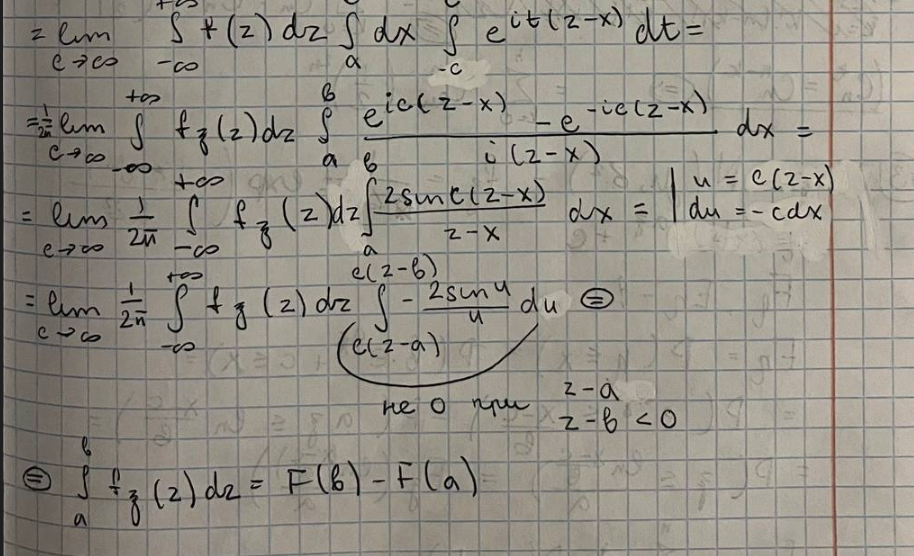 = lim c→∞ ∫_{-∞}^{+∞} f(z) dz ∫_a dx ∫_{-c} e^{it(z-x)} dt =
= 1/2π lim c→∞ ∫_{-∞}^{+∞} f_ξ(z) dz ∫_a^b (e^{ic(z-x)} - e^{-ic(z-x)}) / (i(z-x)) dx =
= lim c→∞ 1/2π ∫_{-∞}^{+∞} f_ξ(z) dz ∫_a^b (2 sin c(z-x)) / (z-x) dx = | u = c(z-x) du = -c dx
= lim c→∞ 1/2π ∫_{-∞}^{+∞} f_ξ(z) dz ∫_{c(z-a)}^{c(z-b)} - (2 sin u) / u du ⊜
не 0 при z-a
z-b < 0
⊜ ∫_a^b f_ξ(z) dz = F(b) - F(a)